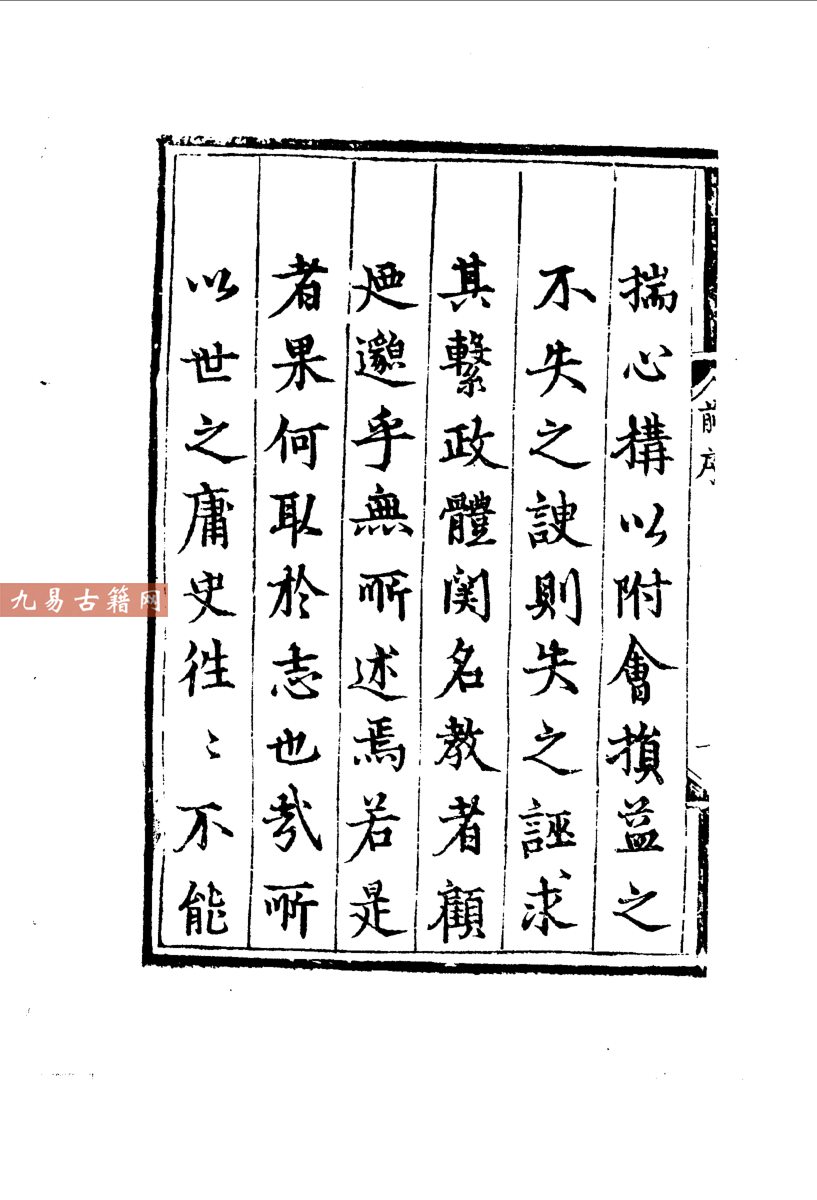 揣心構以附會損益之
不失之諛則失之誣求
其繫政體関名教者顧
逈邈乎無所述焉若是
者果何取於志也㢤所
以世之庸史徃〻不能
前序
一
九易古籍网